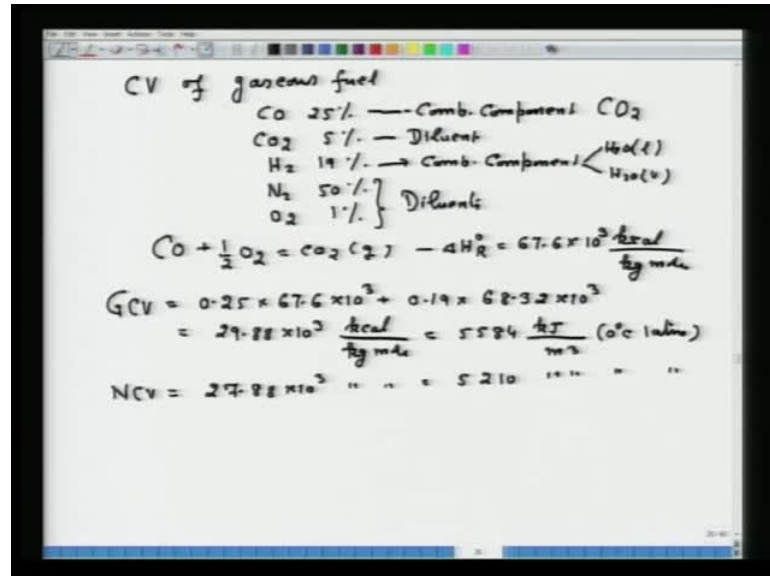 CV of gaseous fuel
CO 25% — Comb. Component CO2
CO2 5% — Diluent
H2 19% → Comb. Component H2O(l)
H2O(v)
N2 50%
O2 1% } Diluents
CO + 1/2 O2 = CO2 (g) - ΔH°R = 67.6 × 10^3 kcal/kg mole
GCV = 0.25 × 67.6 × 10^3 + 0.19 × 68.32 × 10^3
= 29.88 × 10^3 kcal/kg mole = 5584 kJ/m3 (0°C 1 atm)
NCV = 27.88 × 10^3 " " = 5210 " " " "